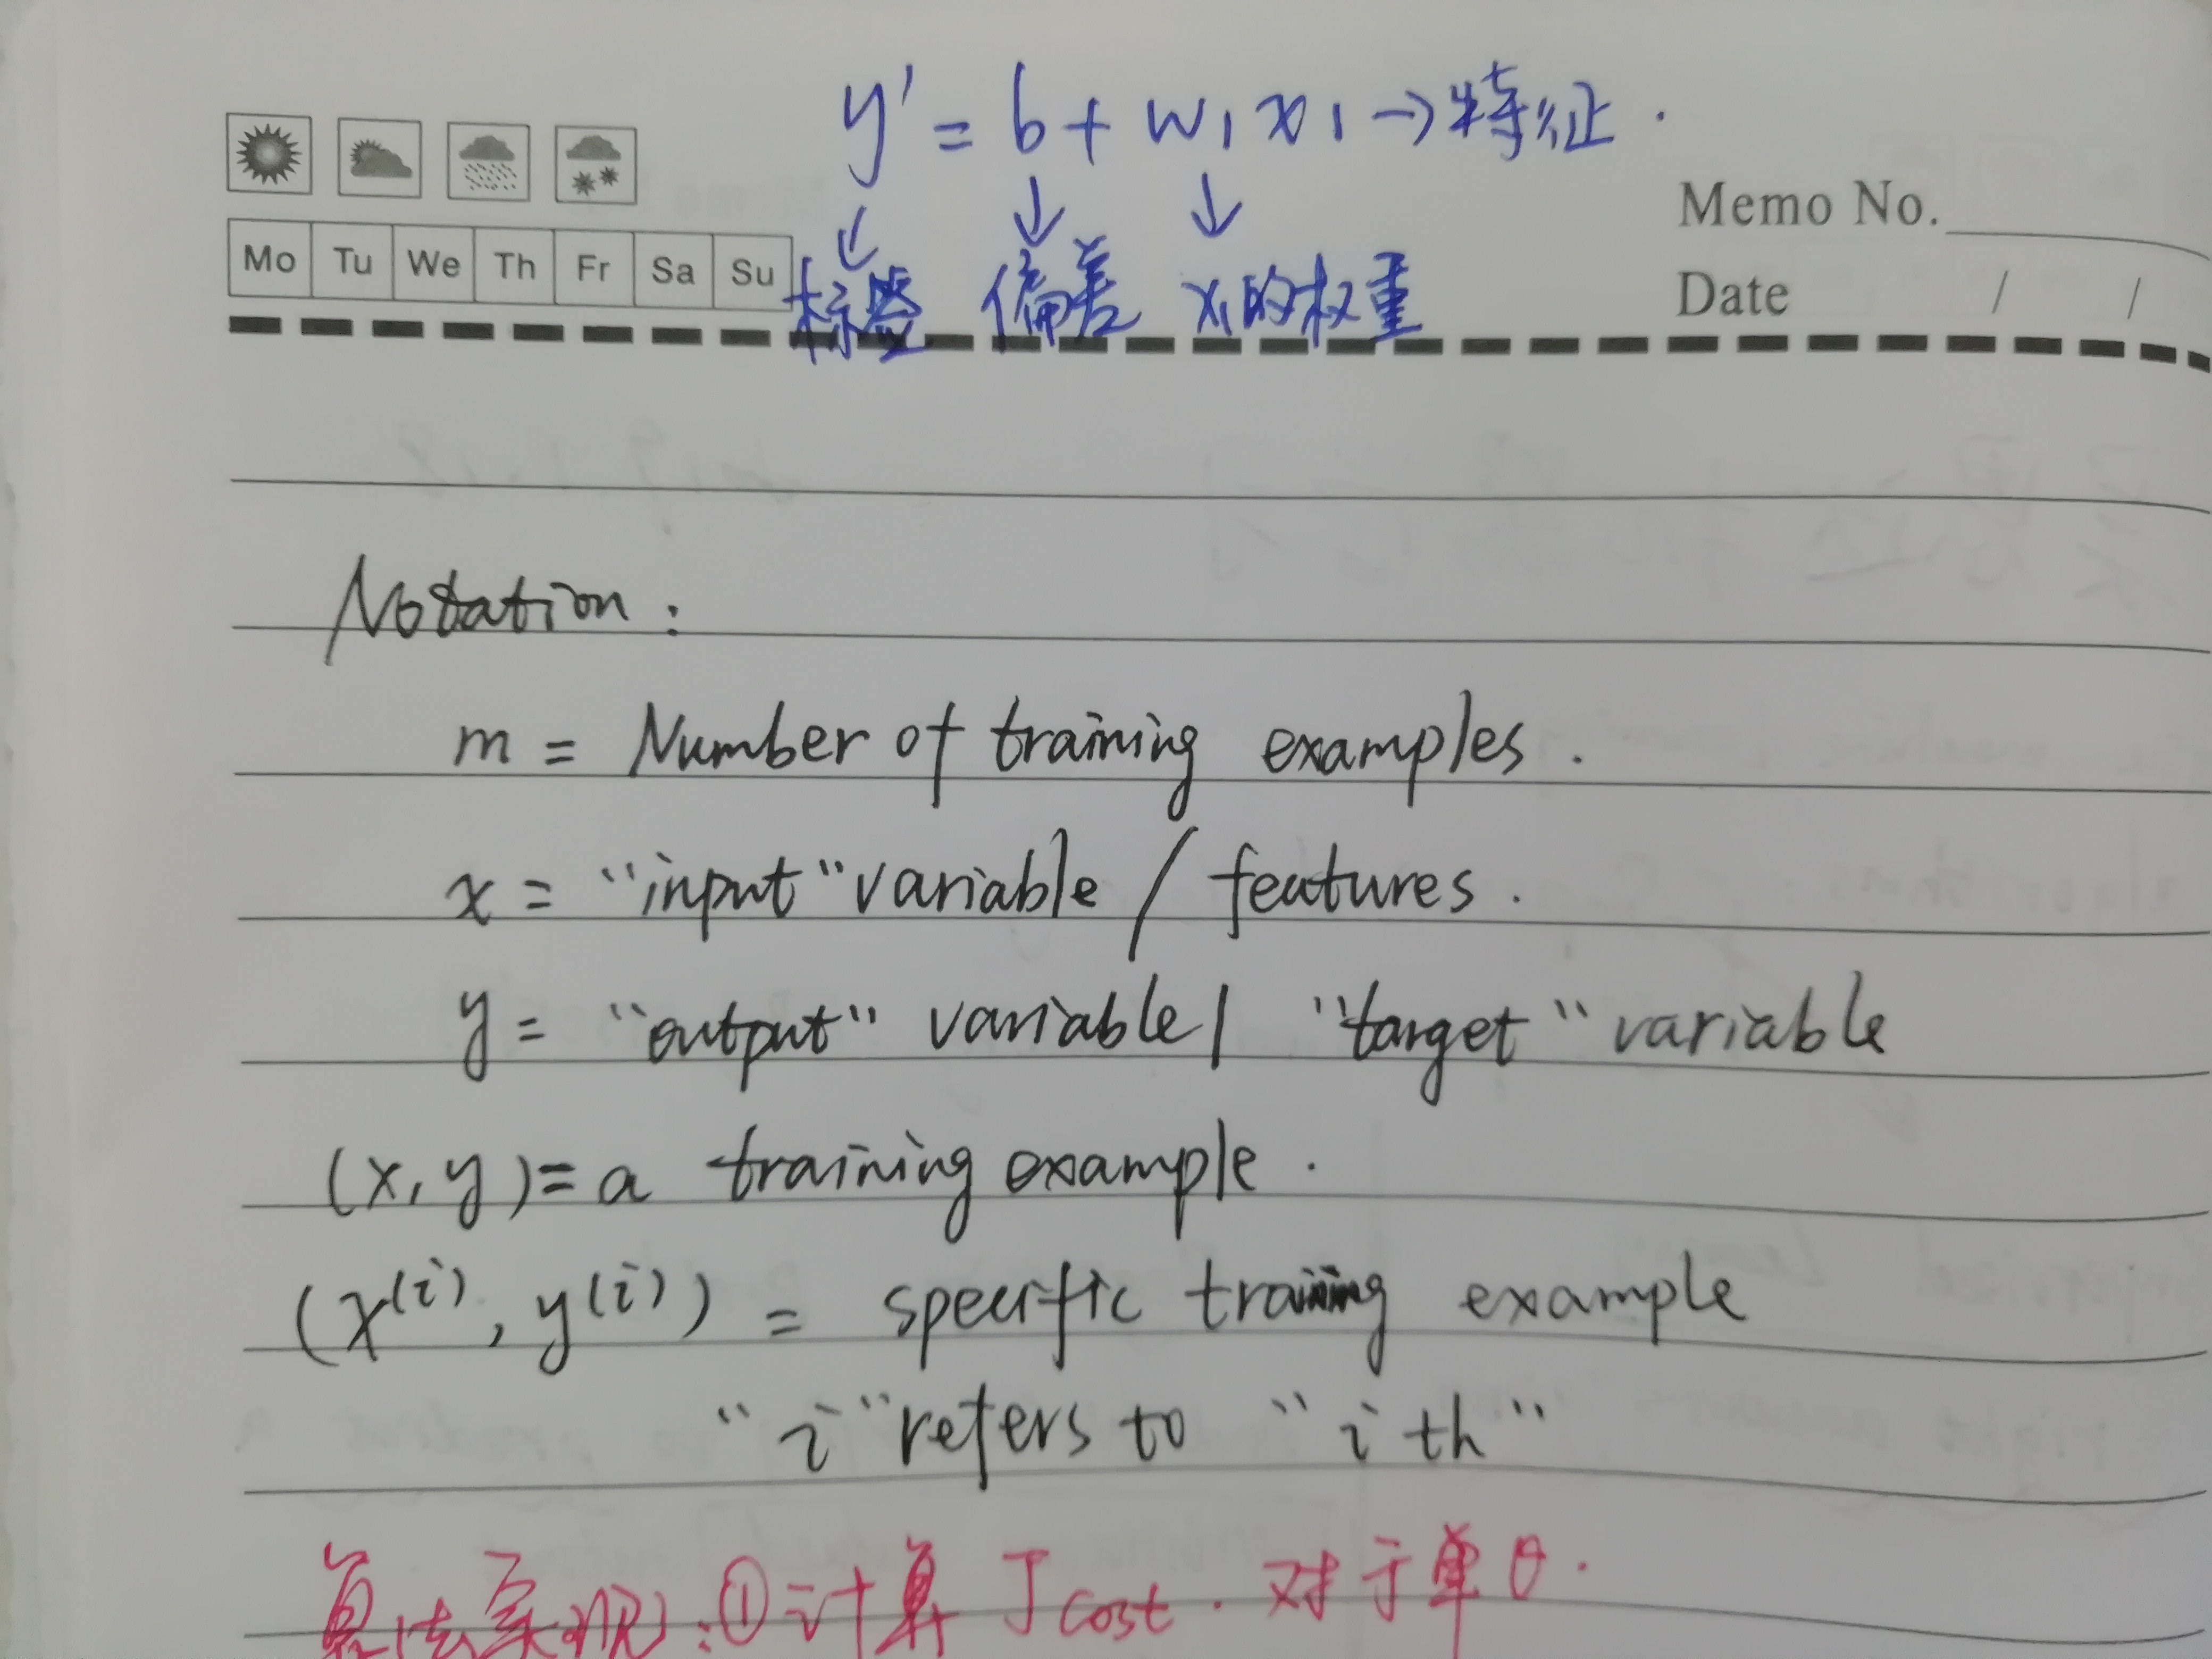 y' = b + w₁ x₁ → 特征.
Memo No.
Mo Tu We Th Fr Sa Su
标签 偏差 x₁的权重
Date / /
Notation:
m = Number of training examples.
x = "input" variable / features.
y = "output" variable / "target" variable
(x, y) = a training example.
(x⁽ⁱ⁾, y⁽ⁱ⁾) = specific training example
"i" refers to "i th"
算法实现:①计算 J cost. 对于单θ.